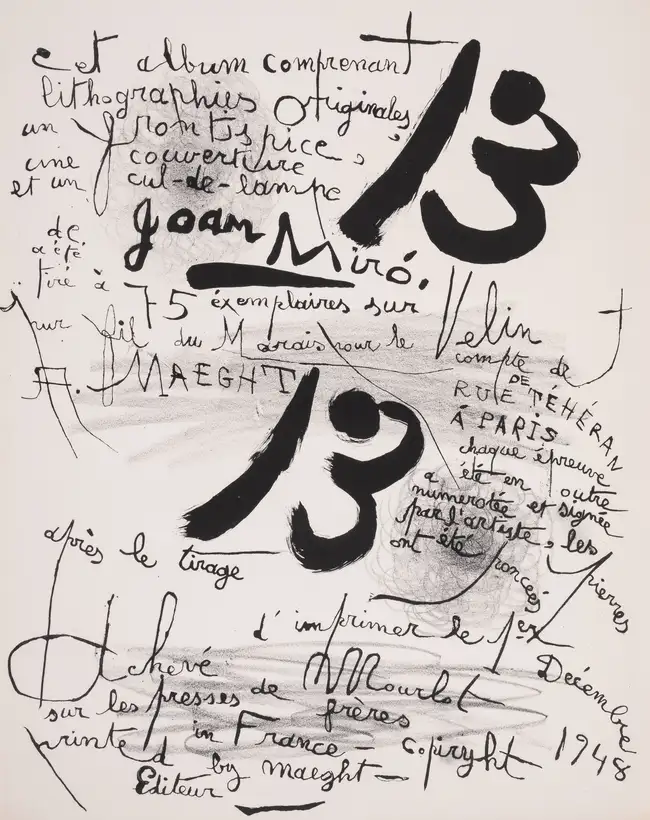 Cet album comprenant 13
lithographies Originales,
un frontispice,
une couverture
et un cul-de-lampe
de Joan Miró.
a été
tiré à 75 éxemplaires sur Velin
pur fil du Marais pour le compte de
A. MAEGHT 13 RUE DE TÉHÉRAN
À PARIS
chaque épreuve
a été en outre
numerotée et signée
par l'artiste, les pierres
ont été poncées
après le tirage
Achevé d'imprimer le 1er Décembre 1948
sur les presses de Mourlot
frères
printed in France - copiryht
by maeght -
Editeur